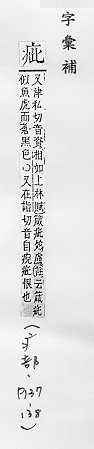 字彙補
疵
又津私切音貲相如上林賦箴疵鵁盧註云箴疵
似魚虎而蒼黑色○又在詣切音自睚疵恨也
(疒部、P137-138)